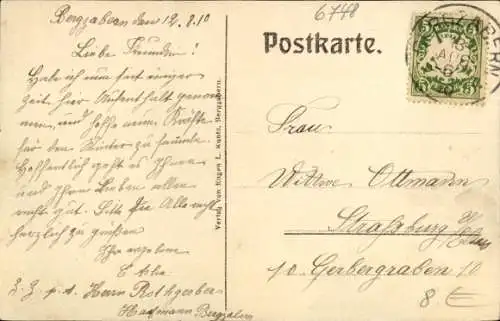 Bergzabern den 12.8.10
Liebe Freundin!
Habe ich nun seit einiger
Zeit hier Aufenthalt genom-
men, und hoffe neue Kräfte
für den Winter zu sammeln.
Hoffentlich geht es Ihnen
und Ihren Lieben allen
recht gut. Bitte Sie Alle recht
herzlich zu grüßen
Ihre ergebene
z. Z. p. A. Herrn Rothgerber
Hauptmann Bergzabern
Verlag von Eugen L. Kuntz, Bergzabern.
6748
Postkarte.
Frau
Wittwe Ottmann
Straßburg i/
Els.
10. Gerbergraben 10
8 €